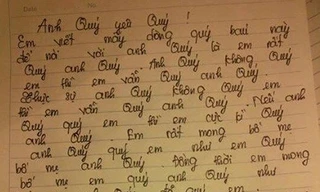 Anh Quý yêu Quý !
Em viết mấy dòng quý báu này
để nói với anh Quý là em rất
Quý anh Quý. Anh Quý không Quý
em thì em vẫn Quý anh Quý.
Thực sự anh Quý không Quý em
thì em vẫn Quý anh Quý. Nếu anh
Quý quý em thì em cực
anh Quý. Em rất mong bố mẹ
anh Quý quý em như em Quý
bố mẹ anh Quý. Đồng thời em mong
bố mẹ em quý anh Quý như
quý em